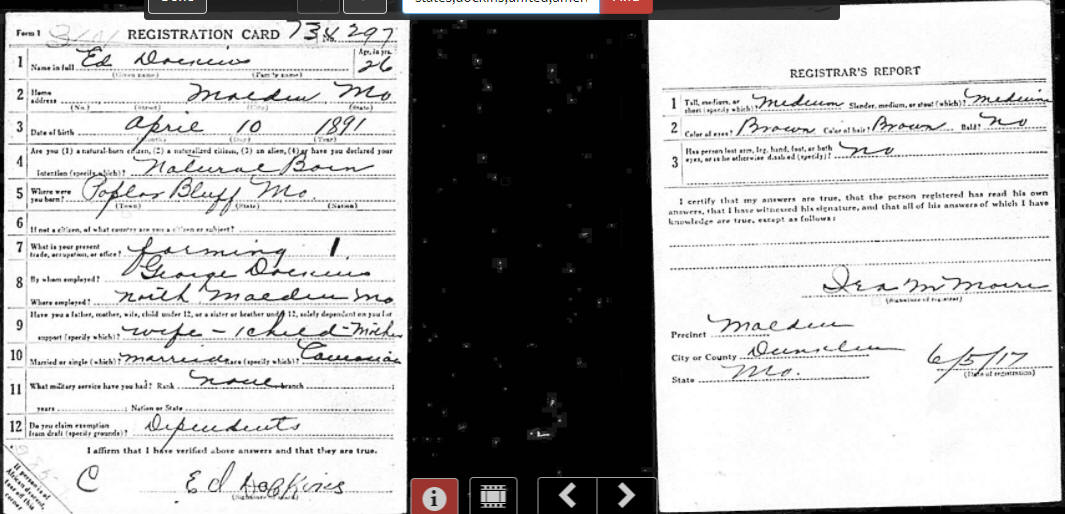 Form 1 REGISTRATION CARD 734 297
1 Name in full Ed Dockins Age, in yrs. 26
(Given name) (Family name)
2 Home address Malden Mo
(No.) (Street) (City) (State)
3 Date of birth April 10 1891
(Month) (Day) (Year)
Are you (1) a natural-born citizen, (2) a naturalized citizen, (3) an alien, (4) or have you declared your
4 intention (specify which)? Natural Born
5 Where were you born? Poplar Bluff Mo.
(Town) (State) (Nation)
6 If not a citizen, of what country are you a citizen or subject?
7 What is your present trade, occupation, or office? farming 1.
8 By whom employed? George Dockins
Where employed? north Malden Mo
Have you a father, mother, wife, child under 12, or a sister or brother under 12, solely dependent on you for
9 support (specify which)? wife - 1 child - Mother
10 Married or single (which)? married Race (specify which)? Caucasian
11 What military service have you had? Rank none branch ;
years ; Nation or State
12 Do you claim exemption from draft (specify grounds)? Dependents
I affirm that I have verified above answers and that they are true.
C Ed Dockins
If person is of African descent, tear off this corner
REGISTRAR'S REPORT
1 Tall, medium, or short (specify which)? Medium Slender, medium, or stout (which)? Medium
2 Color of eyes? Brown Color of hair? Brown Bald? No
3 Has person lost arm, leg, hand, foot, or both eyes, or is he otherwise disabled (specify)? no
I certify that my answers are true, that the person registered has read his own
answers, that I have witnessed his signature, and that all of his answers of which I have
knowledge are true, except as follows:
Ira M Moore
(Signature of registrar)
Precinct Malden
City or County Dunklin
State Mo.
6/5/17
(Date of registration)